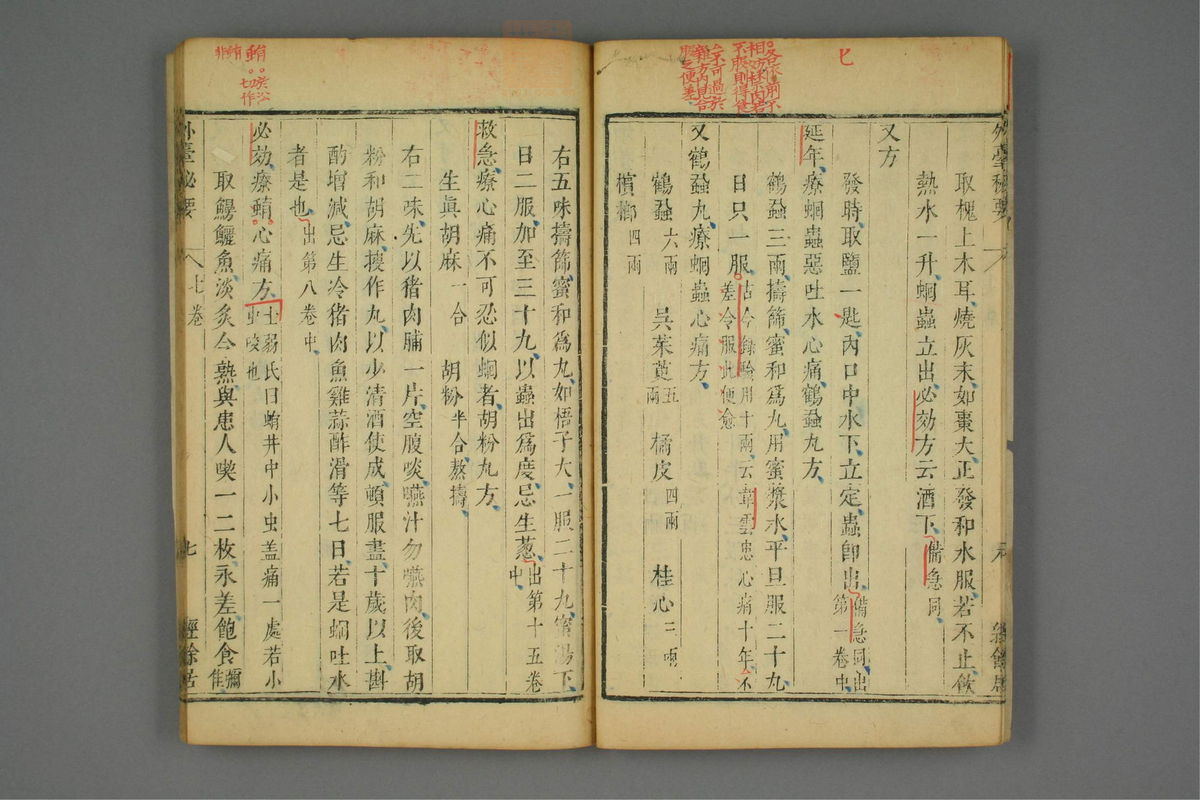 七
取槐上木耳燒灰末如棗大正發和水服若不止飲
熱水一升蚘蟲立出必効方云酒下備急同
又方
發時取鹽一匙內口中水下立定蟲即出備急同出第一卷中
延年療蚘蟲惡吐水心痛鶴蝨丸方
鶴蝨三兩擣篩蜜和為丸用蜜漿水平旦服二十丸
日只一服古今錄驗用十兩云韋雲患心痛十年不差冷服此便愈
又鶴蝨丸療蚘蟲心痛方
鶴蝨六兩 吳茱萸五兩 橘皮四兩 桂心三兩
檳榔四兩
右五味擣篩蜜和爲丸如梧子大一服二十丸蜜湯下
日二服加至三十丸以蟲出爲度忌生葱出第十五卷中
救急療心痛不可忍似蚘者胡粉丸方
生眞胡麻一合 胡粉半合熬擣
右二味先以猪肉脯一片空腹啖嚥汁勿嚥肉後取胡
粉和胡麻搜作丸以少清酒使成頓服盡十歲以上斟
酌增減忌生冷猪肉魚雞蒜酢滑等七日若是蚘吐水
者是也出第八卷中
必効療蛕心痛方士弱氏曰蛕井中小虫盖痛一處若小虫咬也
取鰻鱺魚淡炙令熟與患人喫一二枚永差飽食彌佳
外臺秘要 七卷 七 經餘居